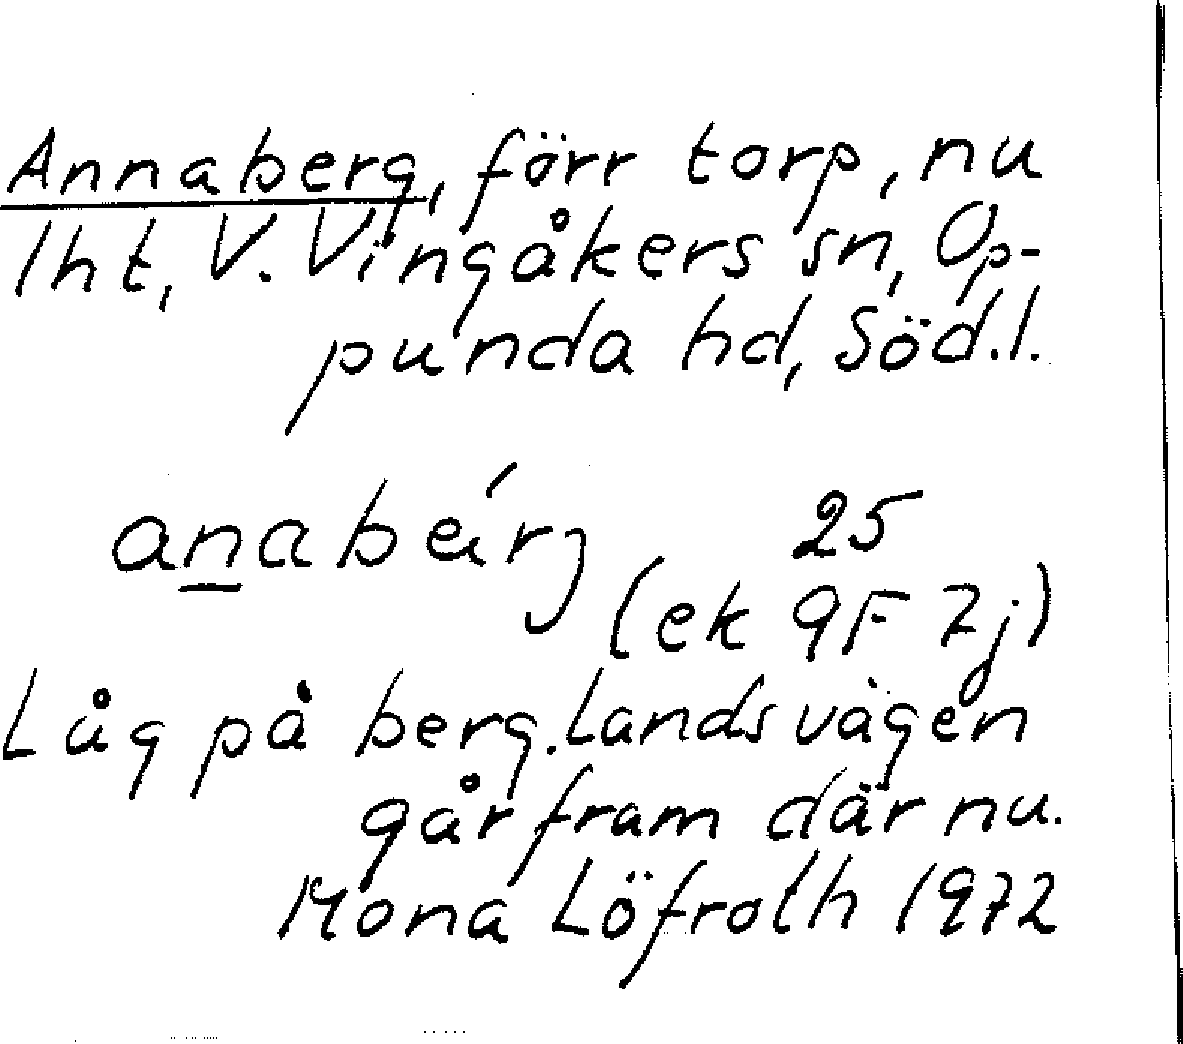 Annaberg, förr torp, nu
lht, V. Vingåkers sn, Op-
punda hd, Söd.l.
anabeŕj 25
(ek 9F 7j)
Låg på berg. Landsvägen
går fram där nu.
Mona Löfroth 1972